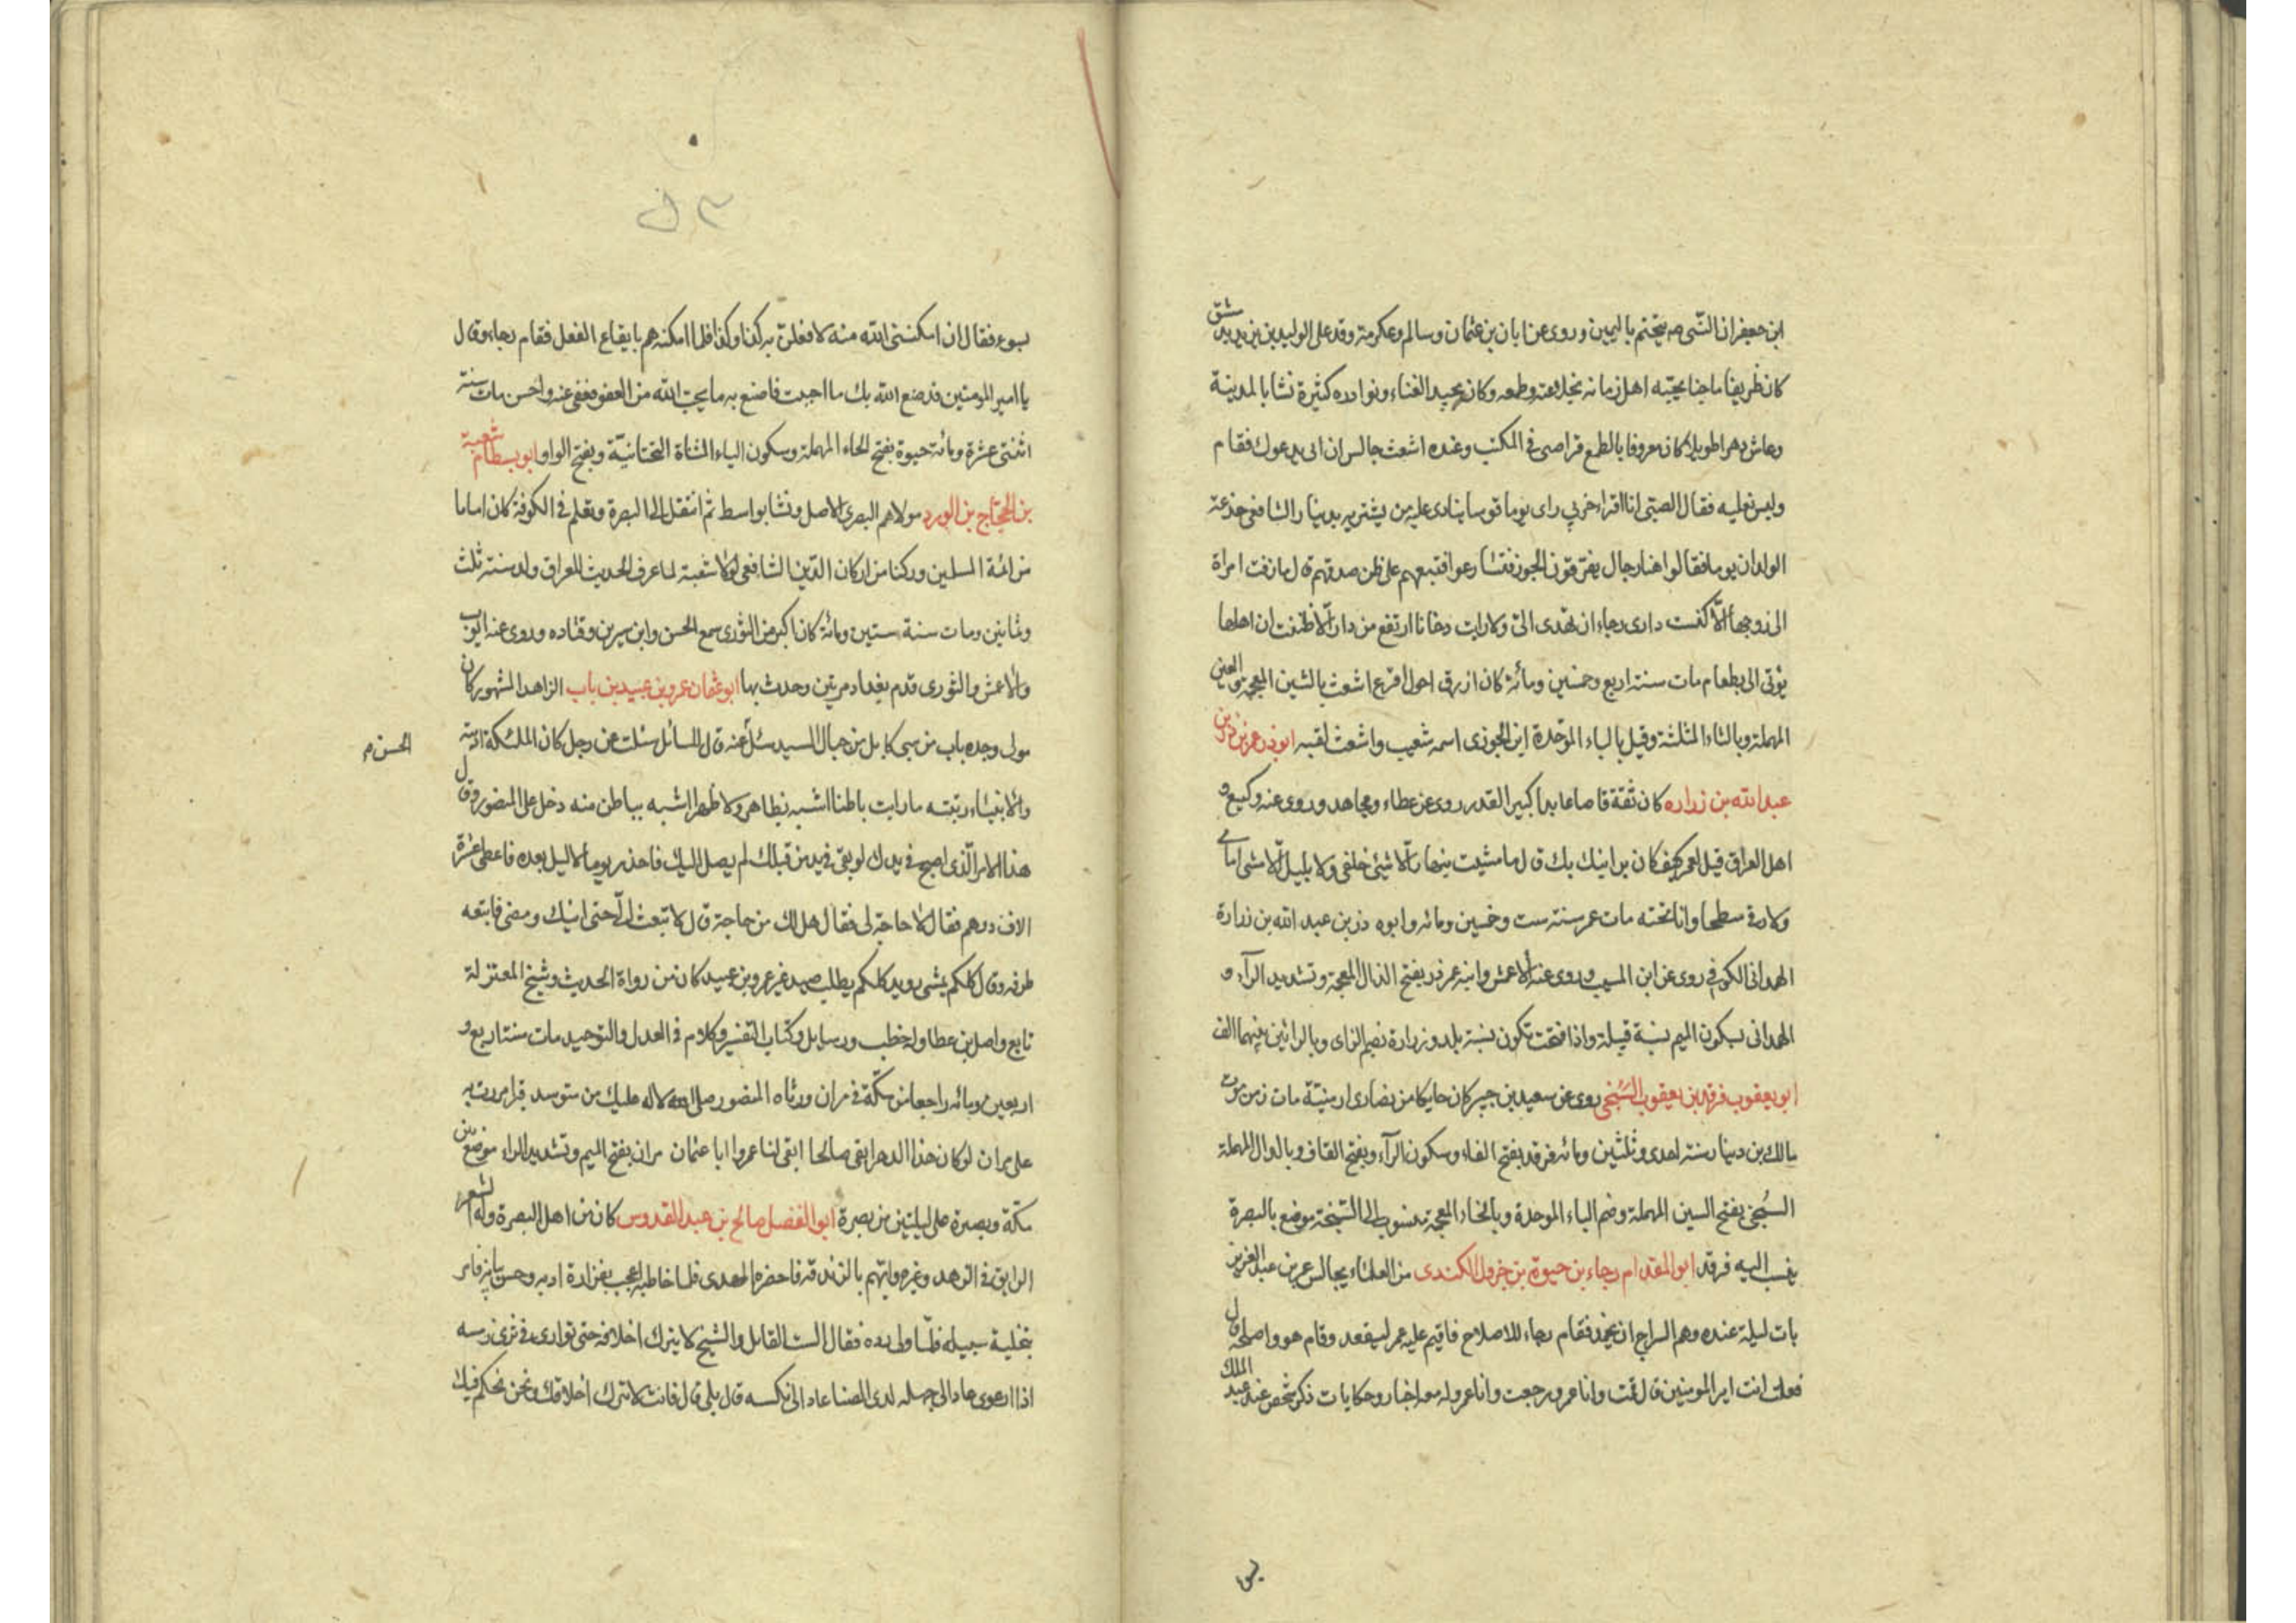 ابن جعفر ان النبي صم يختم باليمين وروى عن ابان بن عثمان وسالم وعكرمة وقد على الوليد بن يزيد بدمشق
كان ظريفا ماجنا يحبه اهل زمانه لخلاعته وطمعه وكان يجيد الغناء ونوادره كثيرة نشا بالمدينة
وعاش دهرا طويلا كان معروفا بالطمع قرا صبى في المكتب وعنده اشعث جالس ان ابى يدعوك فقام
ولبس نعليه فقال الصبى انا اقراء حزبي راى يوما قوسا ينادى عليه من يشتريه بدينار الشافعى خدعته
الولدان يوما فقالوا هنا رجال يفرقون الجوز فتسارعوا فتبعهم على ظن صدقهم قال ما زفت امراة
الى زوجها الا كنست دارى رجاء ان تهدى الى ولا رايت دخانا ارتفع من دار الا ظننت ان اهلها
يؤتى الى بطعام مات سنة اربع وخمسين ومائة كان ازرق احول اقرع اشعث بالشين المعجمة والعين
المهملة وبالثاء المثلثة وقيل بالباء الموحدة ابن الجوزى اسمه شعيب واشعث لقبه ابو ذر عمر بن ذر بن
عبد الله بن زراره كان ثقة قاصا عابدا كبير القدر روى عن عطاء ومجاهد وروى عنه وكيع و
اهل العراق قيل لعمر كيف كان بر ابنك بك قال ما مشيت بنهار الا مشى خلفى ولا بليل الا مشى امامى
ولا رقى سطحا وانا تحته مات عمر سنة ست وخمسين ومائه وابوه ذر بن عبد الله بن زرارة
الهمدانى الكوفى روى عن ابن المسيب وروى عنه الاعمش وابنه عمر ذر بفتح الذال المعجمة وتشديد الرآء و
الهمدانى بسكون الميم نسبة قبيلة واذا فتحت تكون نسبة بلد وزرارة بضم الزاى وبالرائين بينهما الف
ابو يعقوب فرقد بن يعقوب السبخى روى عن سعيد بن جبير كان حايكا من نصارى ارمنية مات زمن موت
مالك بن دينار سنة احدى وثلثين ومائه فرقد بفتح الفاء وسكون الرآء وبفتح القاف وبالدال المهملة
السبخى بفتح السين المهملة وضم الباء الموحدة وبالخاء المعجمة منسوب الى السبخة موضع بالبصرة
ينسب اليه فرقد ابو المقدام رجاء بن حيوة بن جرول الكندى من العلماء يجالس عمر بن عبد العزيز
بات ليلة عنده وهم السراج ان يخمد فقام رجاء للاصلاح فاقيم عليه عمر ليقعد وقام هو واصلحه قال
فعلت انت امير المومنين قال قمت وانا عمر ورجعت وانا عمر وله معه اخبار وحكايات ذكر شخص عند عبد الملك
بسوء فقال ان امكننى الله منه لافعلن به كذا وكذا فلما امكنه هم بايقاع الفعل فقام رجاء وقال
يا امير المومنين قد صنع الله بك ما احببت فاصنع به ما يحب الله من العفو فعفى عنه واحسن مات سنة
اثنتى عشرة ومائه حيوة بفتح الحاء المهملة وسكون الياء المثناة التحتانية وبفتح الواو ابو بسطام شعبة
بن الحجاج بن الورد مولاهم البصرى الاصل ونشا بواسط ثم انتقل الى البصرة وتعلم في الكوفة كان اماما
من ائمة المسلمين وركنا من اركان الدين الشافعى لولا شعبة لما عرف الحديث بالعراق ولد سنة ثلث
وثمانين ومات سنة ستين ومائة كان اكبر من الثورى سمع الحسن وابن سيرين وقتاده وروى عنه ايوب
والاعمش والثورى قدم بغداد مرتين وحدث بها ابو عثمان عمرو بن عبيد بن باب الزاهد المشهور كان
مولى وجده باب من سبى كابل من جبال السيد سئل عنه قال للسائل سئلت عن رجل كان الملئكة ادبته
الحسن م
والانبياء ربته ما رايت باطنا اشبه بظاهر ولا ظاهرا اشبه بباطن منه دخل على المنصور وقال
هذا الامر الذى اصبح في يدك لو بقى في يد من قبلك لم يصل اليك فاحذر يوما لا ليل بعده فاعطى عشرة
الاف درهم فقال لا حاجة لى فقال هل لك من حاجة قال لا تبعث الى حتى اتيك ومضى فابتعه
طرفه وقال كلكم يمشى رويد كلكم يطلب صيد غير عمرو بن عبيد كان من رواة الحديث وشيخ المعتزلة
تابع واصل بن عطا وله خطب ورسايل وكتاب التفسير وكلام في العدل والتوحيد مات سنة اربع و
اربعين ومائه راجعا من مكة في مران ورثاه المنصور صلى الاله عليك من متوسد قبرا مررت به
على مران لو كان هذا الدهر ابقى صالحا ابقى لنا عمروا ابا عثمان مران بفتح الميم وتشديد الراء موضع بين
مكة وبصرة على ليلتين من بصرة ابو الفضل صالح بن عبد القدوس كان من اهل البصرة وله الشعر
الرايق في الزهد وغيره واتهم بالزندقه فاحضره المهدى فلما خاطبه اعجب بغزارة ادبه وحسن بيانه فامر
بتخلية سبيله فلما ولى رده فقال الست القايل والشيخ لا يترك اخلاقه حتى توارى في ثرى رمسه
اذا ارعوى عاد الى جهله لدى الضنا عاد الى نكسه قال بلى قال فانت لا تترك اخلاقك ونحن نحكم فيك